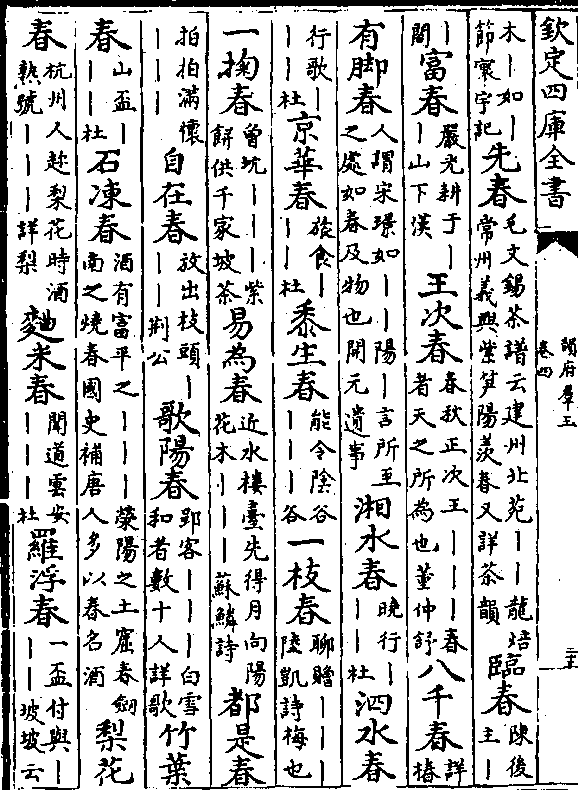 欽定四庫全書
韻府羣玉
卷四
木｜如｜節寰宇記先春毛文錫茶譜云建州北苑｜｜龍焙常州義興紫笋陽羨春又詳茶韻臨春陳後主｜
｜閣富春嚴光耕于｜｜山下漢王次春春秋正次王｜｜｜｜春者天之所為也董仲舒八千春詳椿
有脚春人謂宋璟如｜｜陽｜言所至之處如春及物也開元遺事湘水春晚行｜｜｜杜泗水春
行歌｜｜｜杜京華春旅食｜｜｜杜黍生春能令陰谷｜｜｜谷一枝春聊贈｜｜｜陸凱詩梅也
一掬春曾坑｜｜｜紫餅供千家坡茶易為春近水樓臺先得月向陽花木｜｜｜蘇鱗詩都是春
拍拍滿懷｜｜｜自在春放出枝頭｜｜｜荆公歌陽春郢客｜｜｜白雪和者數十人詳歌竹葉
春山盃｜｜｜杜石凍春酒有富平之｜｜｜滎陽之土窟春劔南之燒春國史補唐人多以春名酒梨花
春杭州人趂梨花時酒熟號｜｜｜詳梨麴米春聞道雲安｜｜｜杜羅浮春一盃付與｜｜｜坡坡云